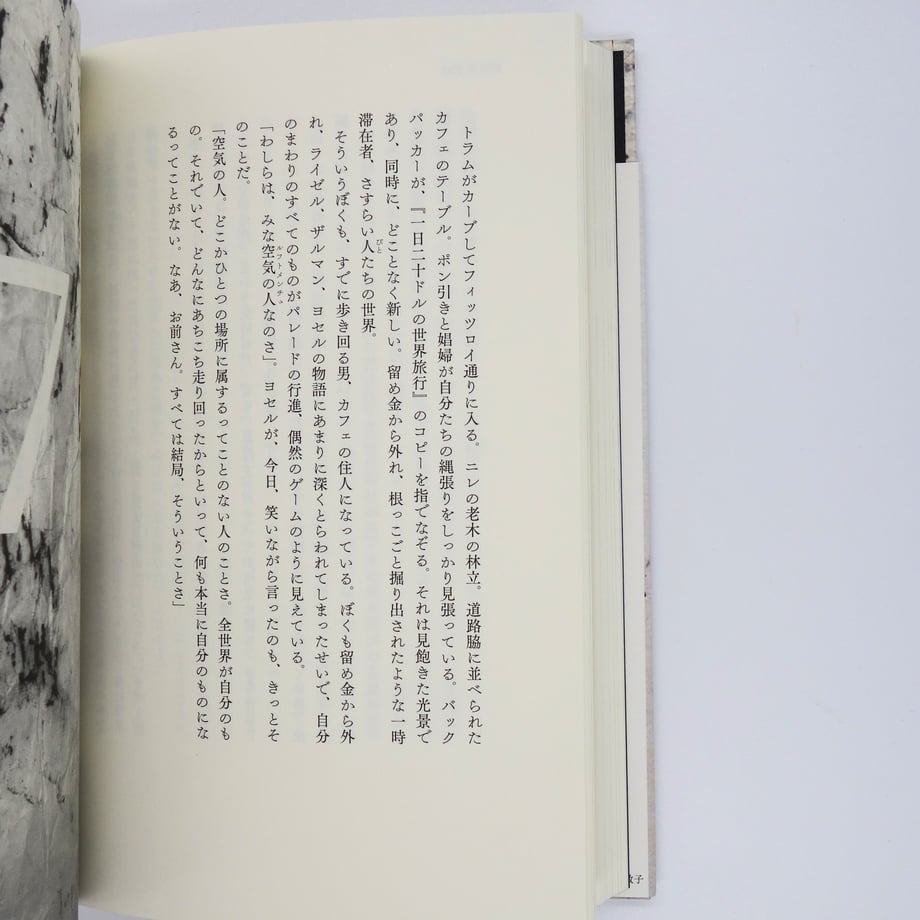 トラムがカーブしてフィッツロイ通りに入る。ニレの老木の林立。道路脇に並べられた
カフェのテーブル。ポン引きと娼婦が自分たちの縄張りをしっかり見張っている。バック
パッカーが、『一日二十ドルの世界旅行』のコピーを指でなぞる。それは見飽きた光景で
あり、同時に、どことなく新しい。留め金から外れ、根っこごと掘り出されたような一時
滞在者、さすらい人たちの世界。
びと
そういうぼくも、すでに歩き回る男、カフェの住人になっている。ぼくも留め金から外
れ、ライゼル、ザルマン、ヨセルの物語にあまりに深くとらわれてしまったせいで、自分
のまわりのすべてのものがパレードの行進、偶然のゲームのように見えている。
「わしらは、みな空気の人なのさ」。ヨセルが、今日、笑いながら言ったのも、きっとそ
ルフトメンチュ
のことだ。
「空気の人。どこかひとつの場所に属するってことのない人のことさ。全世界が自分のも
の。それでいて、どんなにあちこち走り回ったからといって、何も本当に自分のものにな
るってことがない。なあ、お前さん。すべては結局、そういうことさ」
子